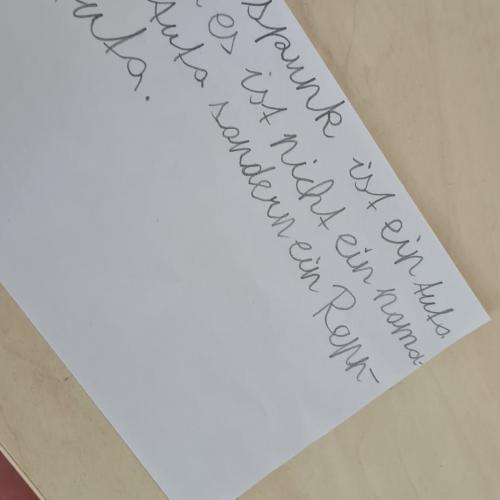 spunk ist ein Auto
es ist nicht ein noma-
Auto sondern ein Renn-
auto.